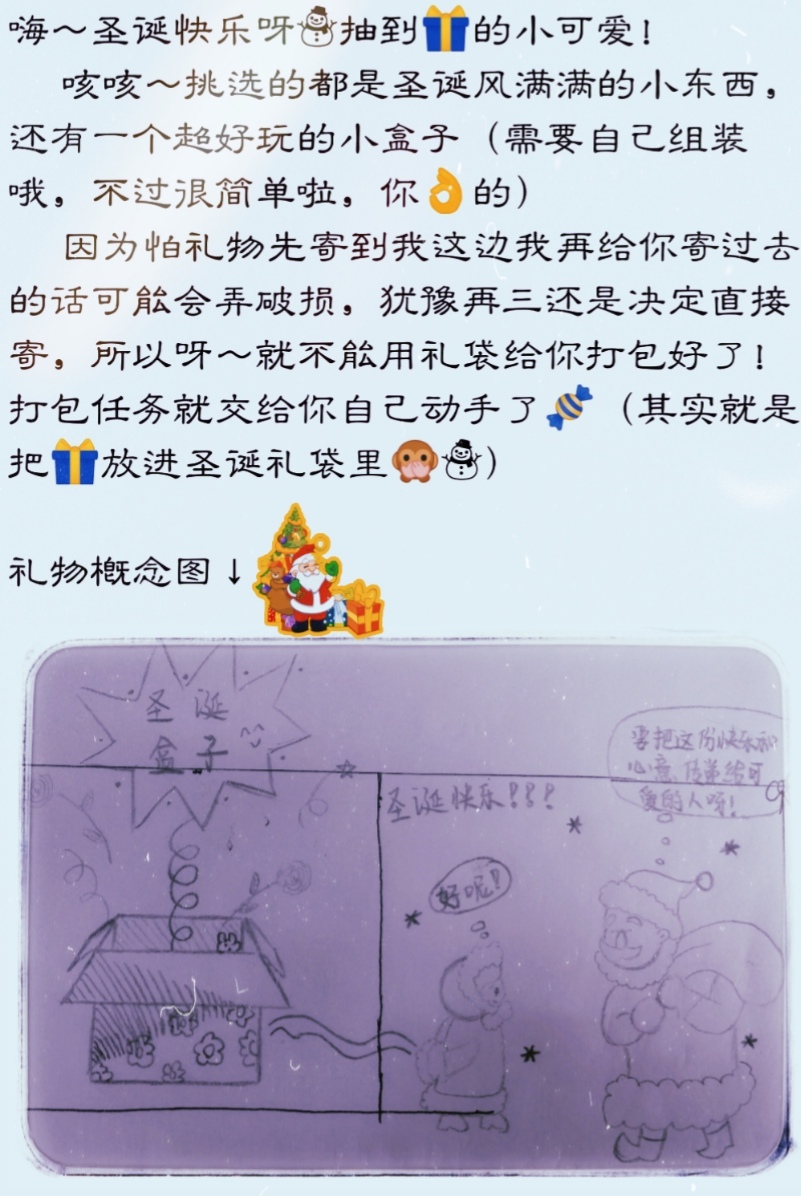 嗨～圣诞快乐呀☃抽到🎁的小可爱！
咳咳～挑选的都是圣诞风满满的小东西，
还有一个超好玩的小盒子（需要自己组装
哦，不过很简单啦，你👌的）
因为怕礼物先寄到我这边我再给你寄过去
的话可能会弄破损，犹豫再三还是决定直接
寄，所以呀～就不能用礼袋给你打包好了！
打包任务就交给你自己动手了🍬（其实就是
把🎁放进圣诞礼袋里🙊☃）
礼物概念图↓
圣诞
盒子
圣诞快乐！！！
好呢！
要把这份快乐和
心意传递给可
爱的人呀！